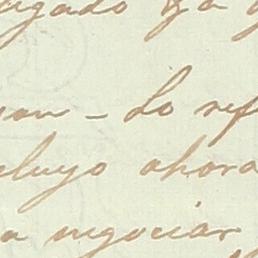 gado ya
– Lo
cluyo ahora
a negociar